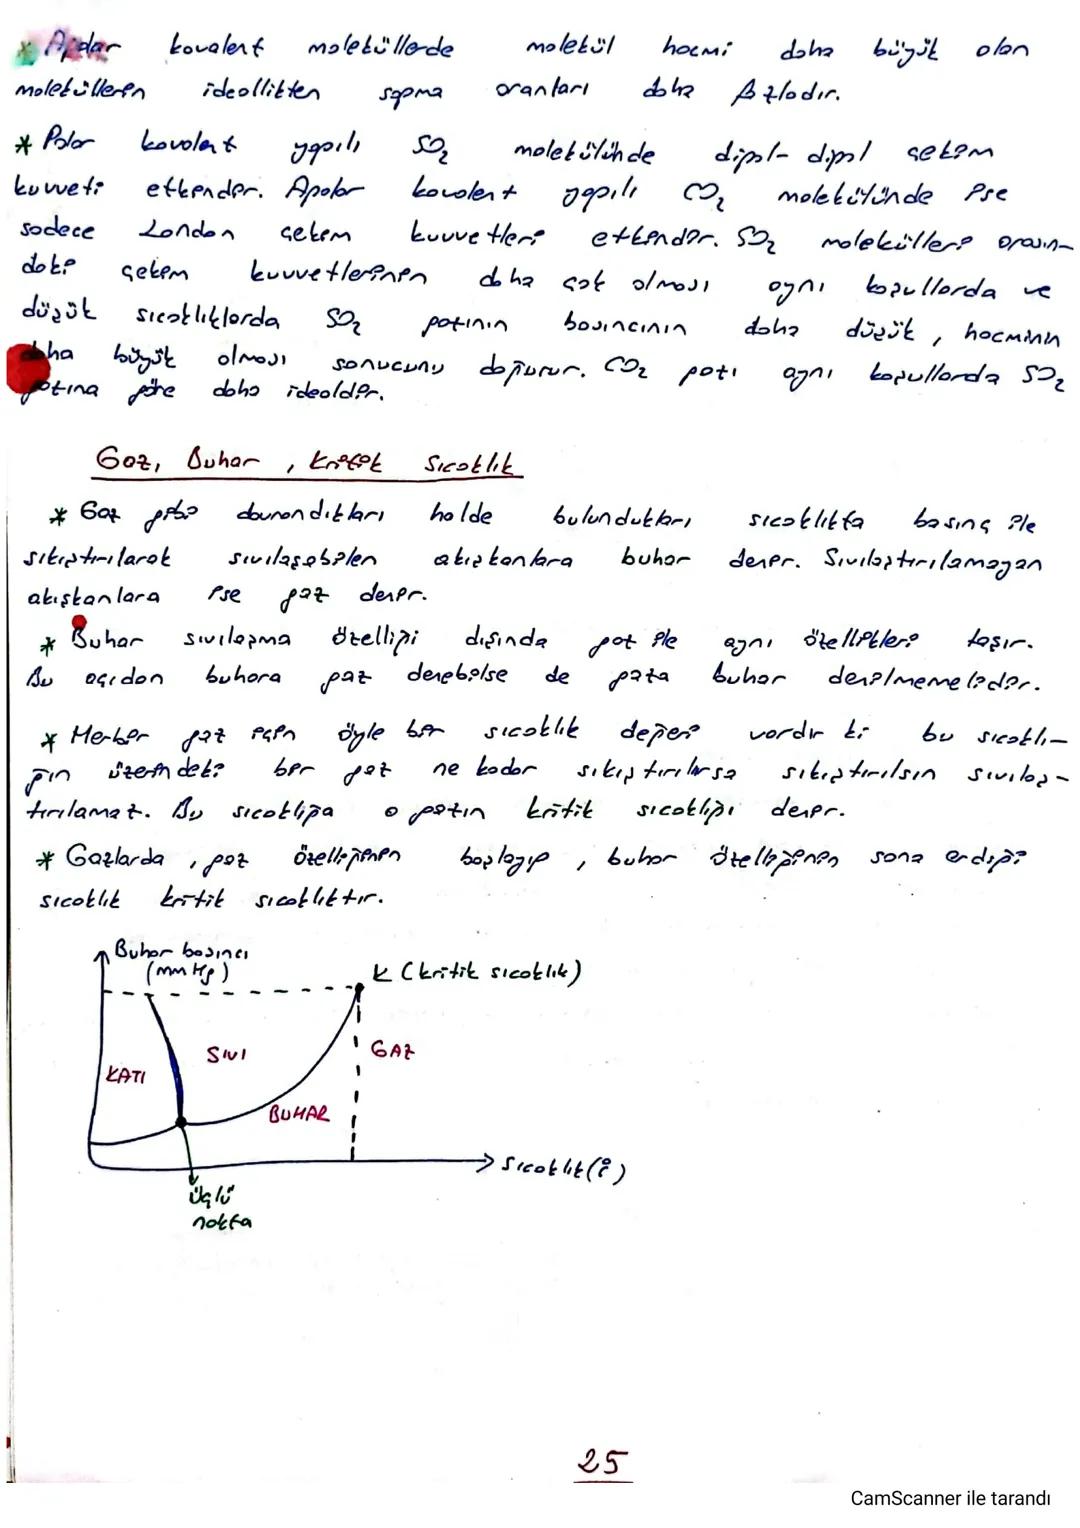 * Apolar kovalent moleküllerde molekül hacmi daha büyük olan
moleküllerin ideallikten sapma oranları daha fazladır.
* Polar kovalent yapılı SO₂ molekülünde dipol-dipol çekim
kuvveti etkindir. Apolar kovalent yapılı CO₂ molekülünde ise
sadece London çekim kuvvetleri etkindir. SO₂ molekülleri arasın-
daki çekim kuvvetlerinin daha çok olması aynı koşullarda ve
düşük sıcaklıklarda SO₂ gazının basıncının daha düşük, hacminin
daha büyük olması sonucunu doğurur. CO₂ gazı aynı koşullarda SO₂
gazına göre daha idealdir.
Gaz, Buhar, Kritik Sıcaklık
* Gaz gibi davrandıkları halde bulundukları sıcaklıkta basınç ile
sıkıştırılarak sıvılaşabilen akışkanlara buhar denir. Sıvılaştırılamayan
akışkanlara ise gaz denir.
* Buhar sıvılaşma özelliği dışında gaz ile aynı özellikleri taşır.
Bu açıdan buhara gaz denebilse de gaza buhar denilmemelidir.
* Her bir gaz için öyle bir sıcaklık değeri vardır ki bu sıcaklı-
ğın üzerindeki bir gaz ne kadar sıkıştırılırsa sıkıştırılsın sıvılaş-
tırılamaz. Bu sıcaklığa o gazın kritik sıcaklığı denir.
* Gazlarda, gaz özelliğinin başlayıp, buhar özelliğinin sona erdiği
sıcaklık kritik sıcaklıktır.
Buhar basıncı
(mm Hg)
K (kritik sıcaklık)
SIVI
GAZ
KATI
BUHAR
Sıcaklık (°C)
üçlü
nokta
25
CamScanner ile tarandı